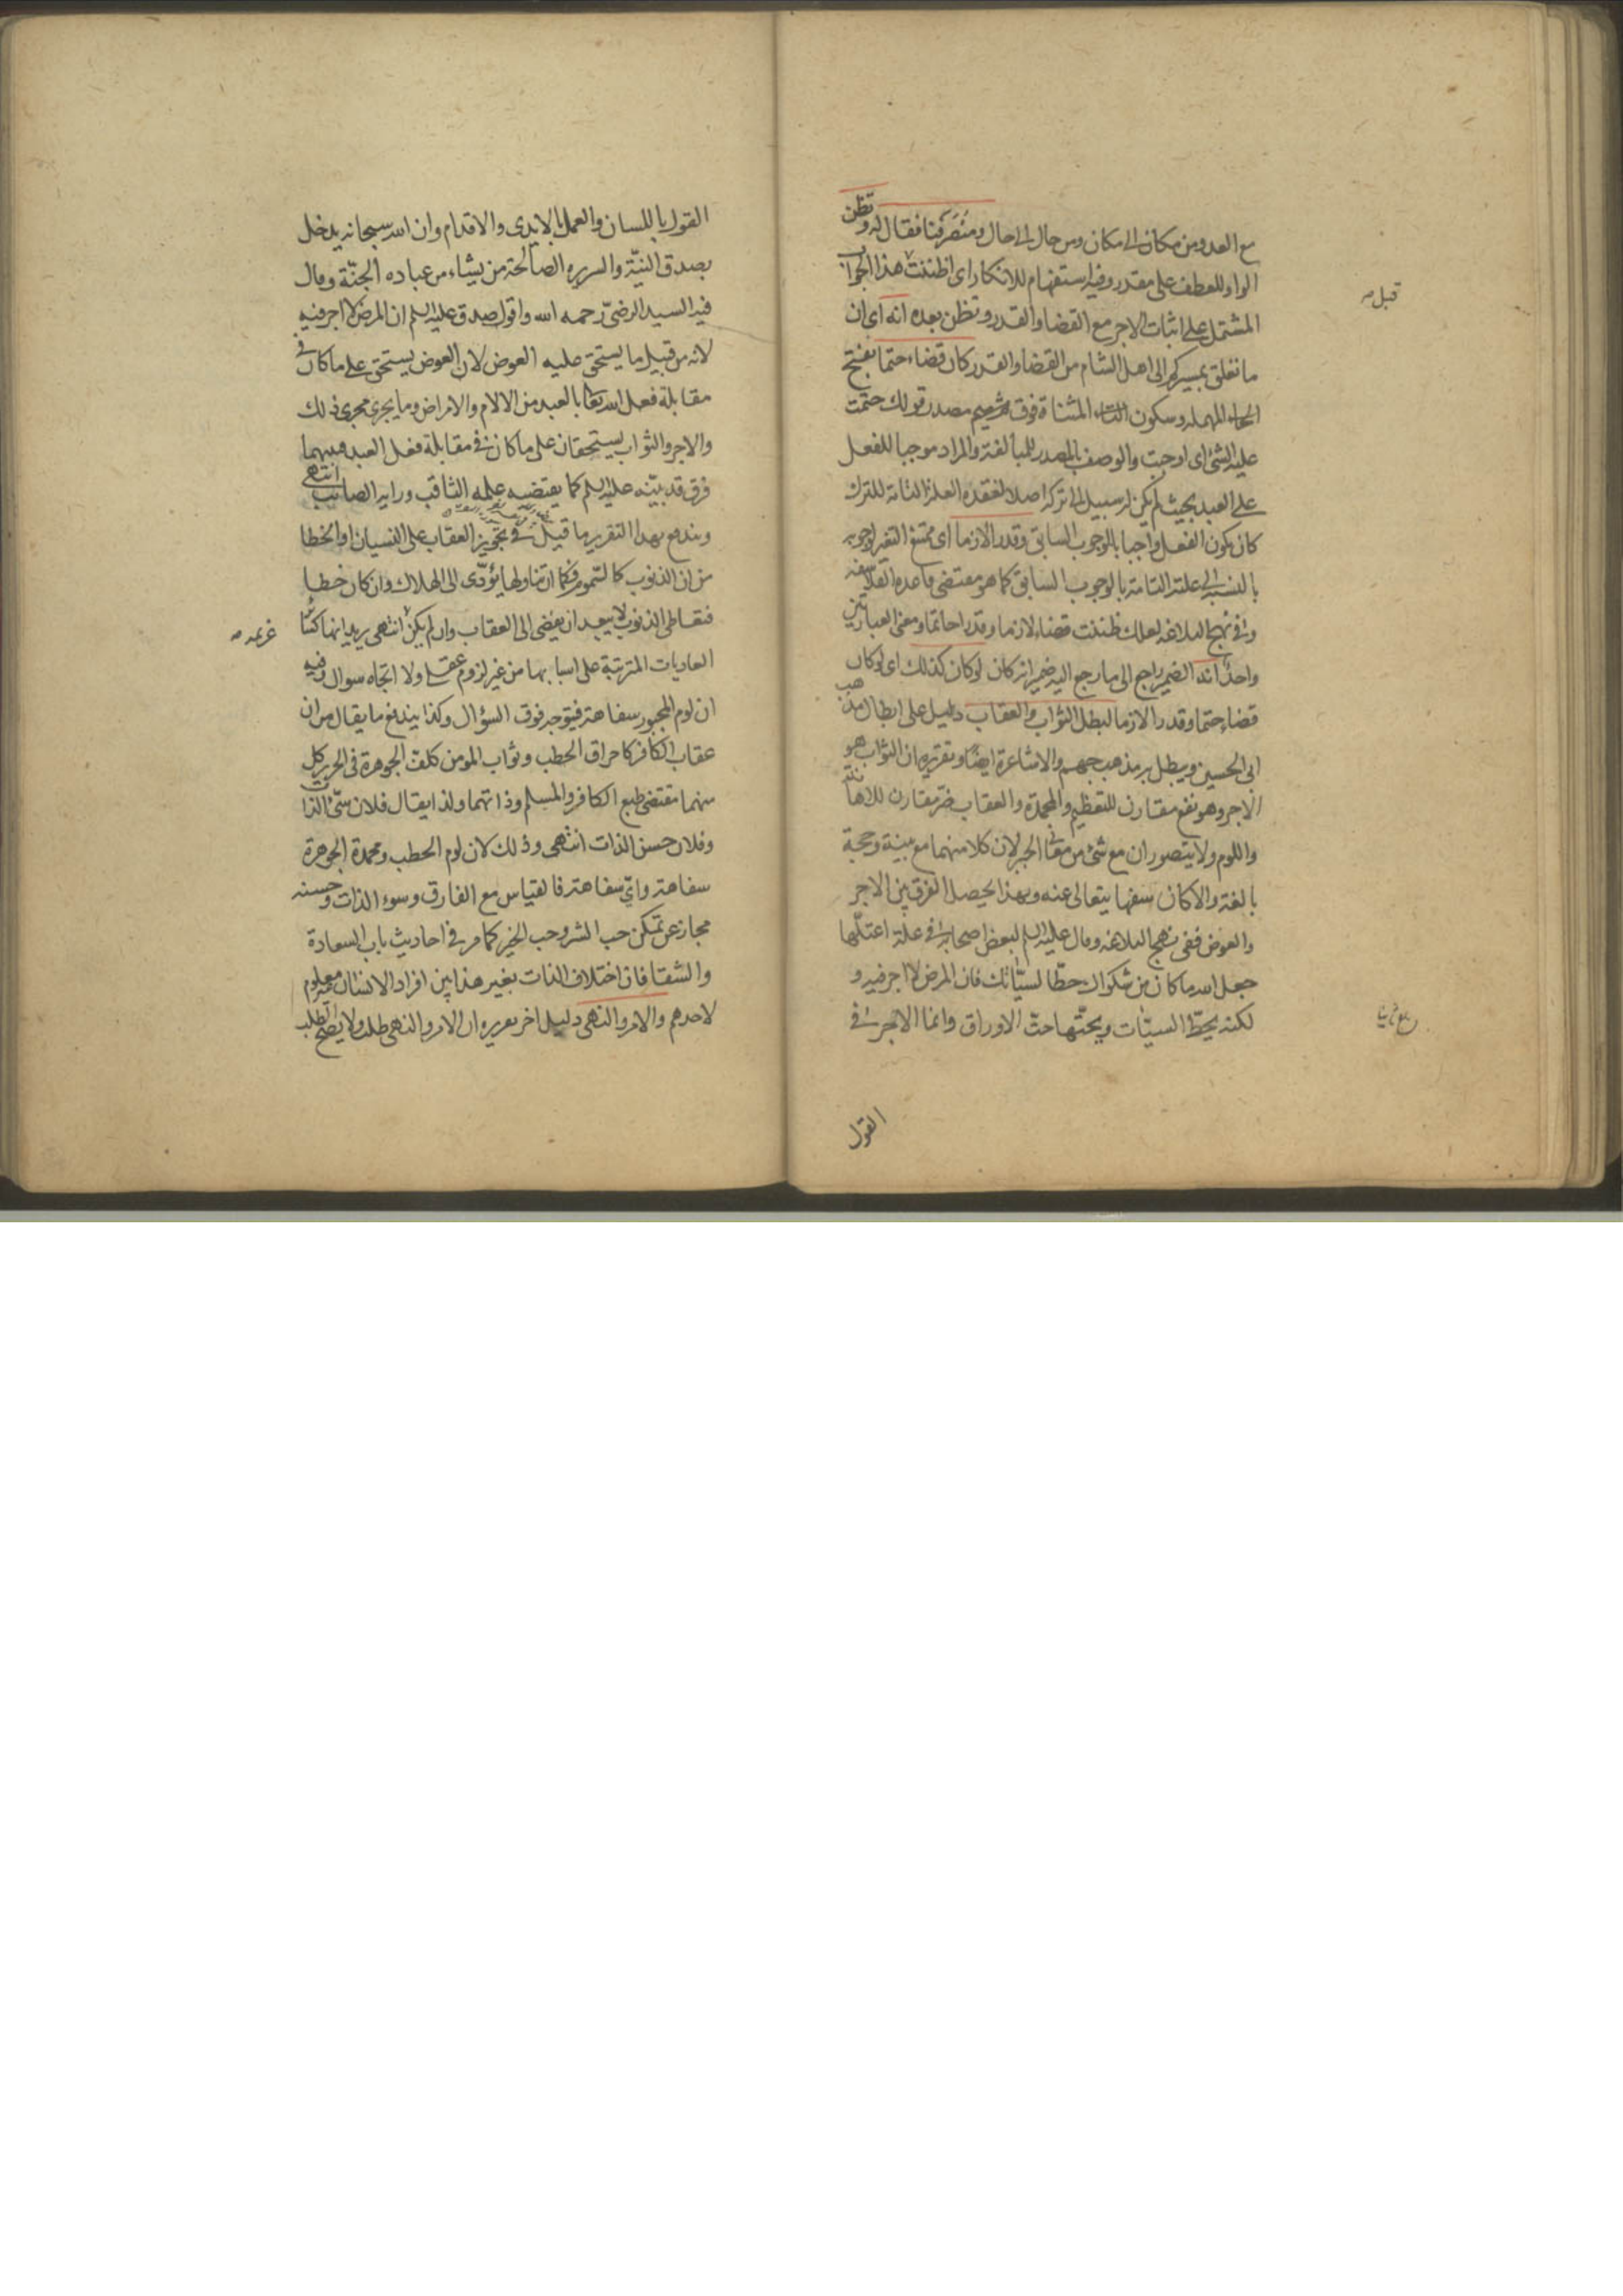 مع العدو من مكان الى مكان ومن حال الى حال ومنصرفنا فقال له وتظن
الواو للعطف على مقدر وفيه استفهام للانكار اى اظننت هذا الجواب
المشتمل على اثبات الاجر مع القضا والقدر وتظن بعده انه اى ان
ما تعلق بمسيركم الى اهل الشام من القضا والقدر كان قضاء حتما بفتح
الحاء المهملة وسكون التاء المثناة فوق ثم ميم مصدر قولك حتمت
عليه الشئ اى اوجبت والوصف بالمصدر للمبالغة والمراد موجبا للفعل
على العبد بحيث لم يكن له سبيل الى تركه اصلا لفقده العلة التامة للترك
كان يكون الفعل واجبا بالوجوب السابق وقدرا لازما اى ممتنع التغير لوجوبه
بالنسبة الى علته التامة بالوجوب السابق كما هو مقتضى قاعدة الفلاسفه
وفى نهج البلاغه لعلك ظننت قضاء لازما وقدرا حاتما ومعنى العبارتين
واحد انه الضمير راجع الى ما رجع اليه ضمير انه كان لو كان كذلك اى لو كان
قضاء حتما وقدرا لازما لبطل الثواب والعقاب دليل على ابطال مذهب
ابى الحسين ويبطل به مذهب جهم والاشاعرة ايضا وتقريره ان الثواب هو
الاجر وهو نفع مقارن للتعظيم والمحمدة والعقاب ضر مقارن للاهانة
واللوم ولا يتصوران مع شئ من معانى الجبر لان كلا منهما مع بينة وحجة
بالغة والا كان سفها يتعالى عنه وبهذا يحصل الفرق بين الاجر
والعوض ففى نهج البلاغه وقال عليه السلم لبعض اصحابه فى علة اعتلها
جعل الله ما كان من شكواك حطا لسيئاتك فان المرض لا اجر فيه و
لكنه يحط السيئات ويحتها حت الاوراق وانما الاجر فى
القول
قبل
القول باللسان والعمل بالايدى والاقدام وان الله سبحانه يدخل
بصدق النية والسريره الصالحة من يشاء من عباده الجنة وقال
فيه السيد الرضى رحمه الله واقول صدق عليه السلم ان المرض لا اجر فيه
لانه من قبيل ما يستحق عليه العوض لان العوض يستحق على ما كان فى
مقابلة فعل الله تعا بالعبد من الالام والامراض وما يجرى مجرى ذلك
والاجر والثواب يستحقان على ما كان فى مقابلة فعل العبد فبينهما
فرق قد بينه عليه السلم كما يقتضيه علمه الثاقب ورايه الصائب انتهى
ويندفع بهذا التقرير ما قيل فى تجويز العقاب على النسيان او الخطا
من ان الذنوب كالسموم فكما ان تناولها يؤدى الى الهلاك وان كان خطا
فتعاطى الذنوب لا يبعد ان يفضى الى العقاب وان لم يكن انتهى يريد انها كسائر
العاديات المترتبة على اسبابها من غير لزوم عقلى ولا اتجاه سوال وفيه
ان لوم المجبور سفاهة فيتوجه فوق السؤال وكذا يندفع ما يقال من ان
عقاب الكافر كاحراق الحطب وثواب المومن كلف الجوهرة فى الحرير كل
منهما مقتضى طبع الكافر والمسلم وذاتهما ولذا يقال فلان سئ الذات
وفلان حسن الذات انتهى وذلك لان لوم الحطب ومحمدة الجوهرة
سفاهة واى سفاهة فالقياس مع الفارق وسوء الذات وحسنه
مجاز عن تمكن حب الشر وحب الخير كما مر فى احاديث باب السعادة
والشقا فان اختلاف الذات بغير هذا بين افراد الانسان غير معلوم
لاحدهم والامر والنهى دليل اخر تقريره ان الامر والنهى طلب ولا يصح الطلب
عزيمة